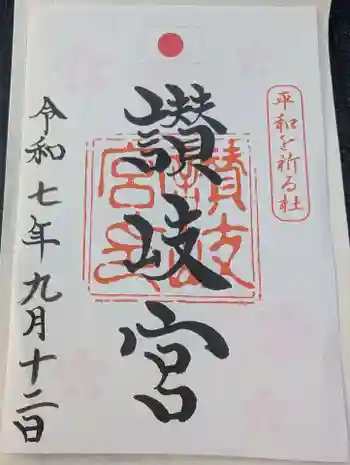 平和を祈る社
讃岐宮
讃岐宮印
令和七年九月十二日